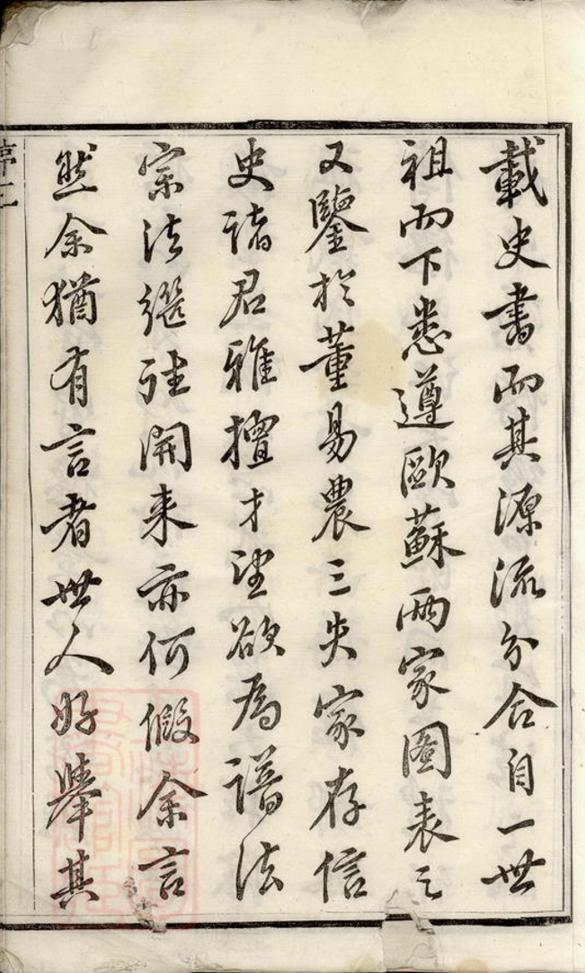 載史書而其源流分合自一世
祖而下悉遵歐蘇兩家圖表之
又鑒於董易農三失家存信
史諸君雅擅才望欲為譜法
宗法繼往開来亦何假余言
然余猶有言者世人好舉其
序二